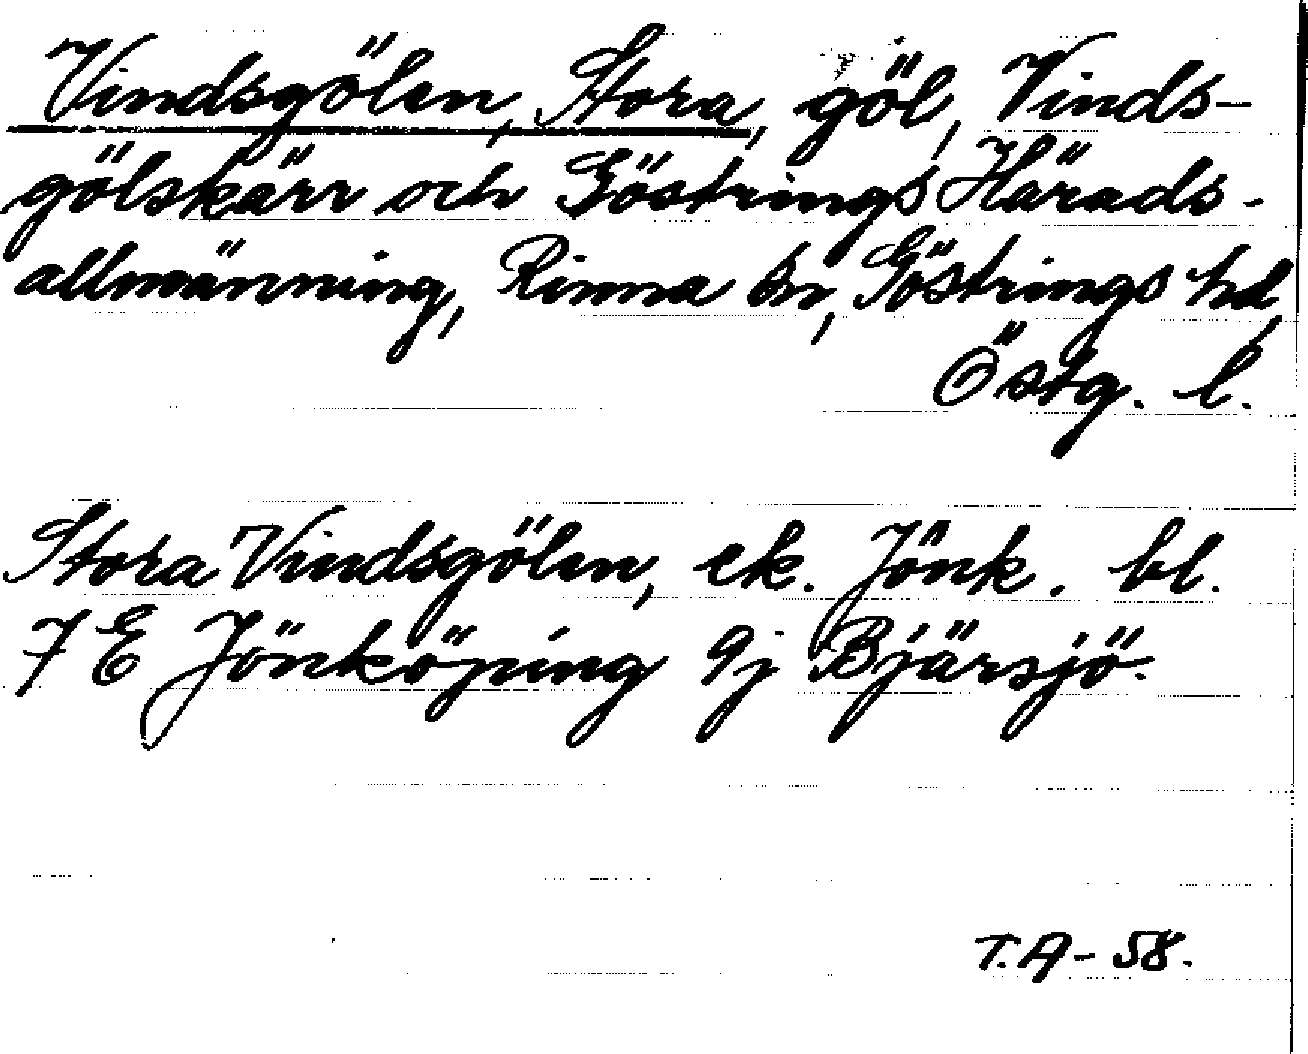 Vindsgölen, Stora, göl, Vinds-
gölskärr och Göstrings Härads-
allmänning, Rinna sn, Göstrings hd,
Östg. l.
Stora Vindsgölen, ek. Jönk. bl.
7 E Jönköping 9j Bjärsjö.
T.A-58.